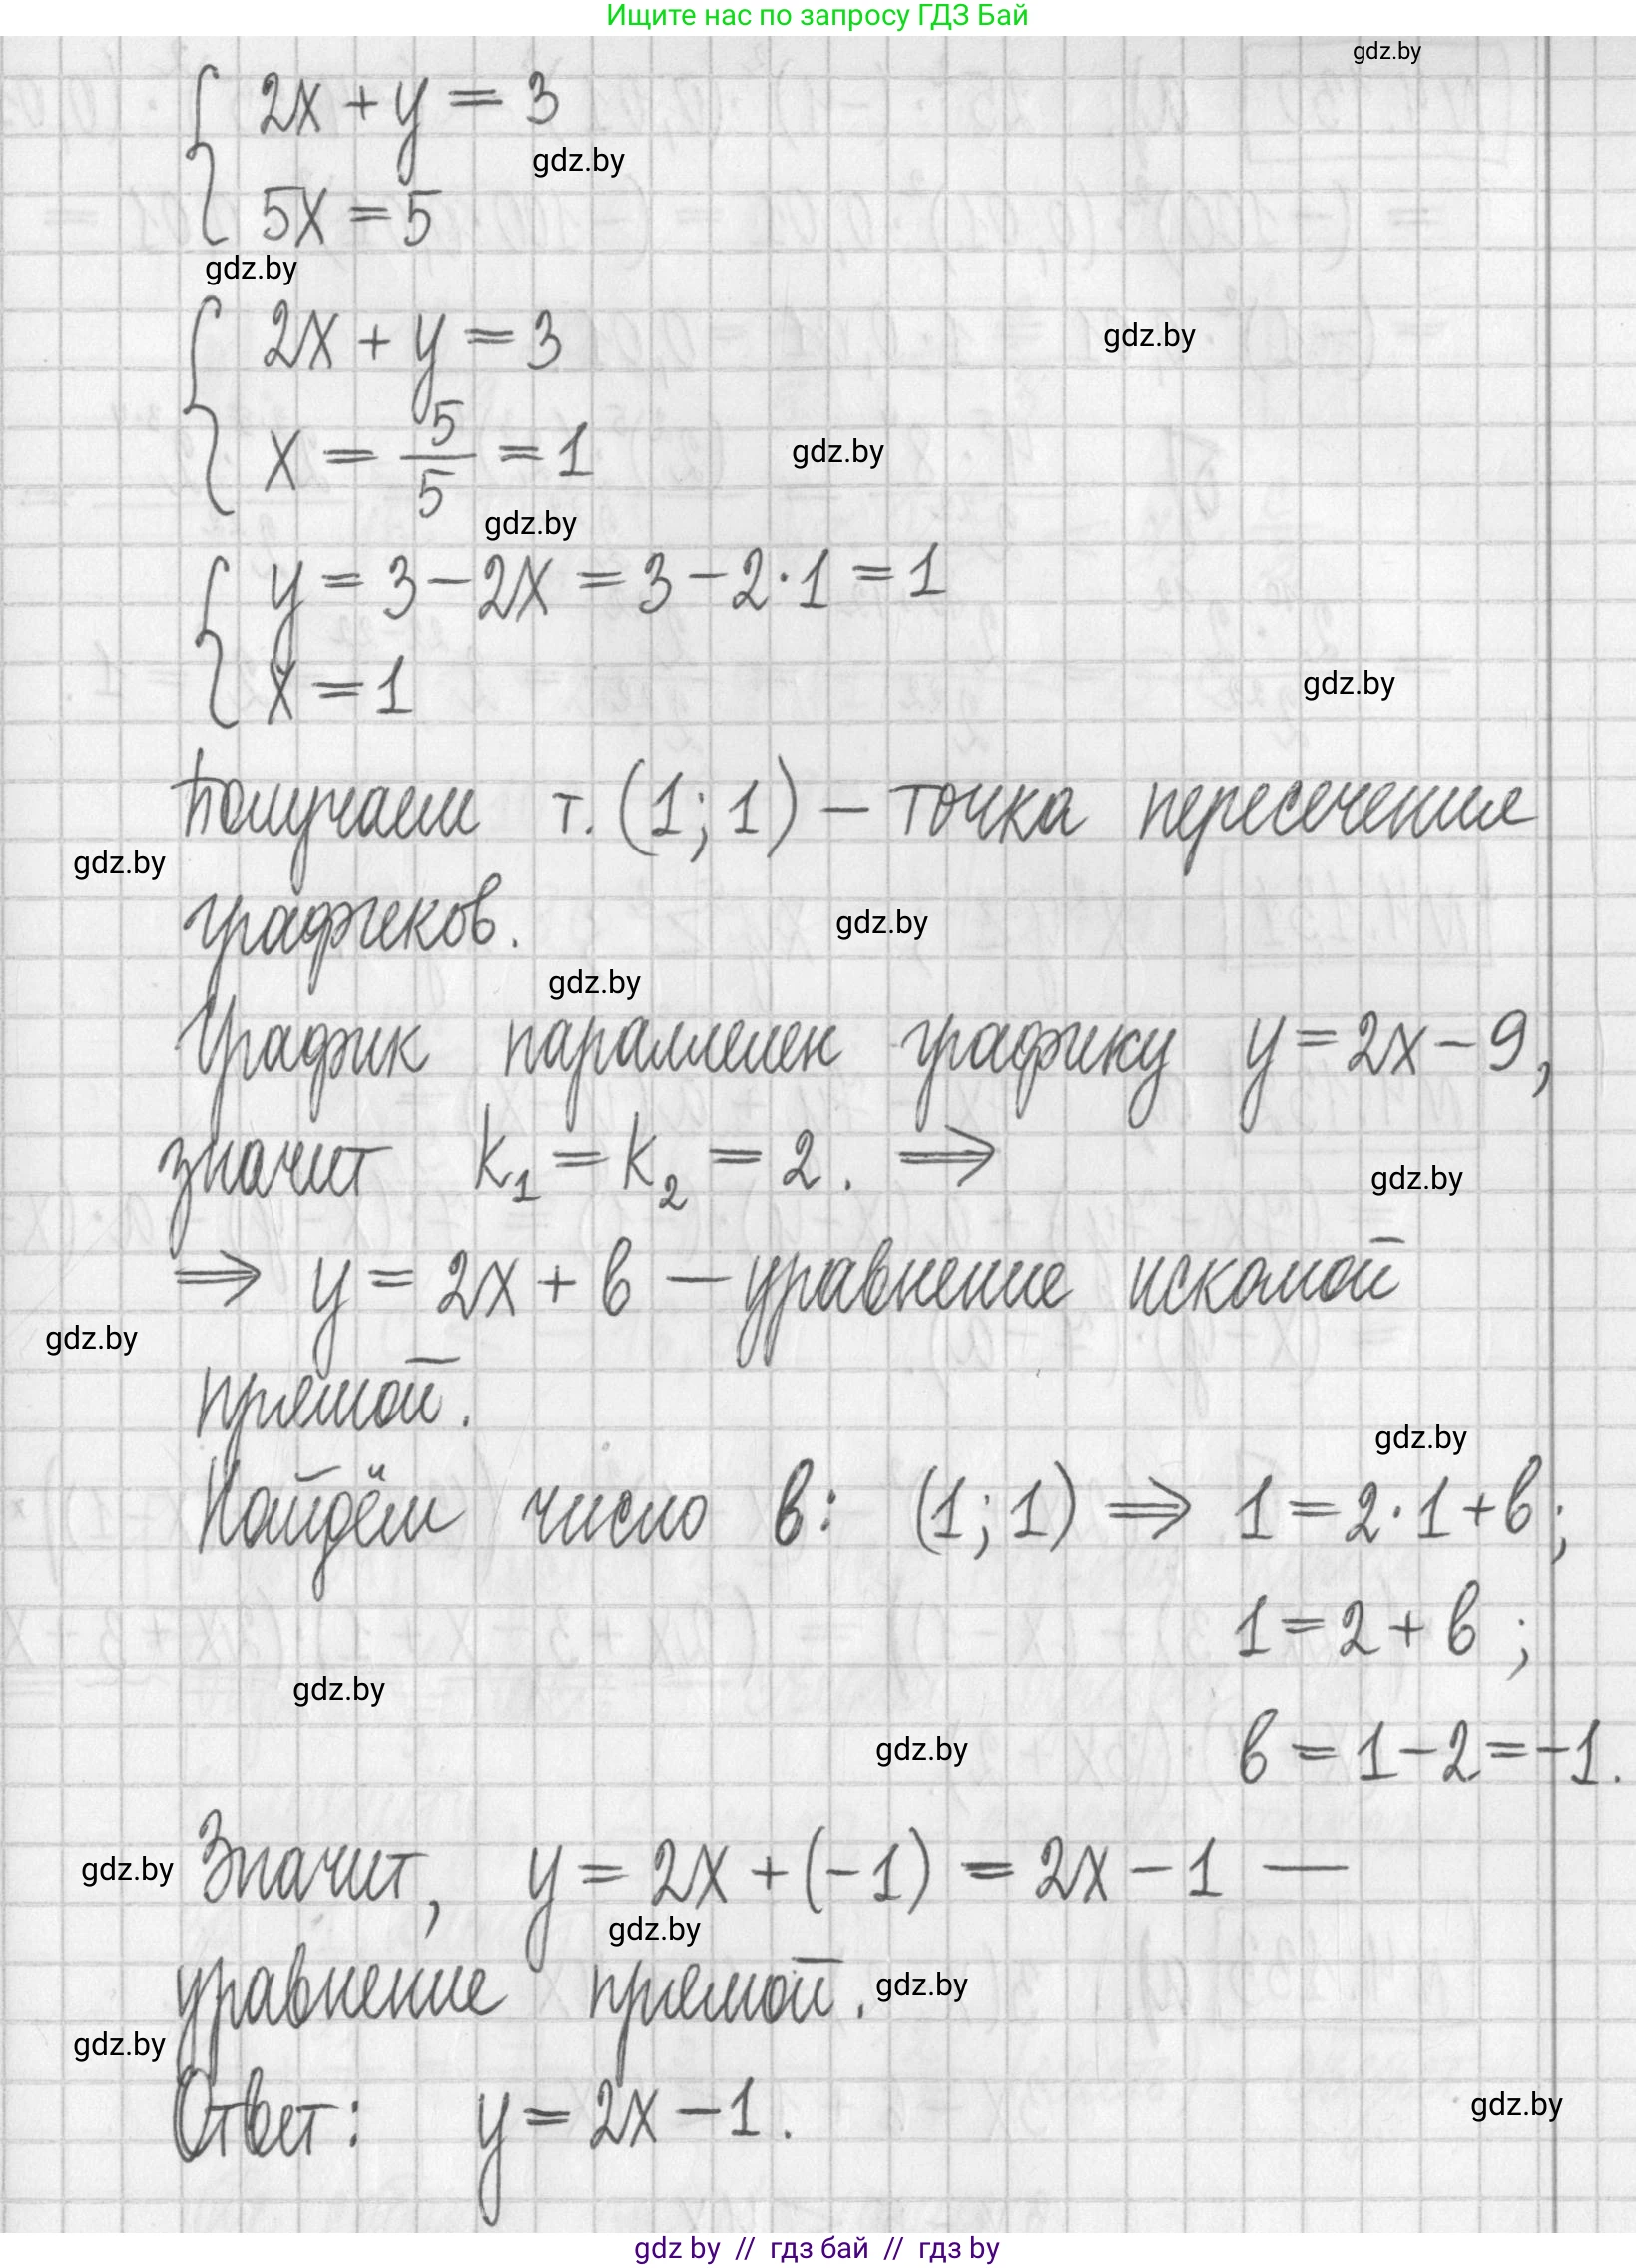 Ищите нас по запросу ГДЗ Бай
gdz.by
2x + y = 3
gdz.by
5x = 5
gdz.by
2x + y = 3
gdz.by
x = 5/5 = 1
gdz.by
gdz.by
y = 3 - 2x = 3 - 2·1 = 1
x = 1
gdz.by
Получаем т. (1; 1) - точка пересечения
gdz.by
графиков.
gdz.by
gdz.by
График параллелен графику y = 2x - 9,
значит k₁ = k₂ = 2. ⟹
gdz.by
⟹ y = 2x + b - уравнение искомой
gdz.by
прямой.
gdz.by
Найдём число b: (1; 1) ⟹ 1 = 2·1 + b;
1 = 2 + b ;
gdz.by
gdz.by
b = 1 - 2 = -1.
gdz.by
Значит, y = 2x + (-1) = 2x - 1 —
gdz.by
уравнение прямой.
gdz.by
gdz.by
Ответ: y = 2x - 1.
gdz.by
gdz by // гдз бай // гдз by